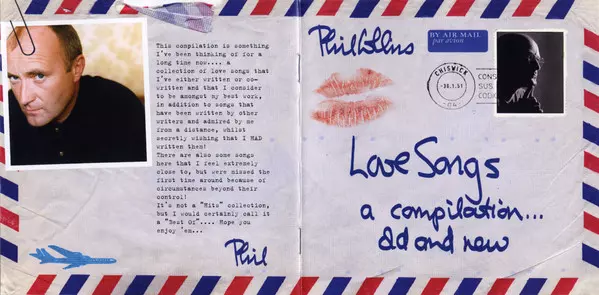 This compilation is something
I've been thinking of for a
long time now.... a
collection of love songs that
I've either written or co-
written and that I consider
to be amongst my best work,
in addition to songs that
have been written by other
writers and admired by me
from a distance, whilst
secretly wishing that I HAD
written them!
There are also some songs
here that I feel extremely
close to, but were missed the
first time around because of
circumstances beyond their
control!
It's not a "Hits" collection,
but I would certainly call it
a "Best Of".... Hope you
enjoy 'em...
Phil
Phil Collins
BY AIR MAIL
par avion
CHISWICK
-30.1.51
CONS
SUS
Love Songs
a compilation...
old and new